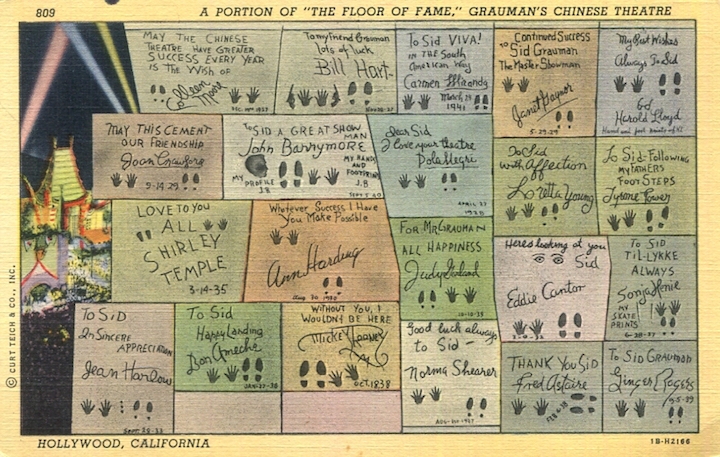 809
A PORTION OF "THE FLOOR OF FAME," GRAUMAN'S CHINESE THEATRE
MAY THE CHINESE
THEATRE HAVE GREATER
SUCCESS EVERY YEAR
IS THE WISH OF
Colleen Moore
DEC. 19TH 1927
To my friend Grauman
lots of luck
Bill Hart-
To Sid VIVA!
IN THE South
American Way
Carmen Miranda
March 24
1941
To Continued Success
Sid Grauman
The Master Showman
Janet Gaynor
5-29-29
My Best Wishes
Always To Sid
Harold Lloyd
MAY THIS CEMENT
OUR FRIENDSHIP
Joan Crawford
9-14-29
To SID A GREAT SHOW
MAN
John Barrymore
MY HANDS
AND
FOOTPRINTS
J.B
MY
PROFILE
J.B
SEPT. 5 40
Dear Sid
I love your theatre
Pola Negri
APRIL
1928
To Sid
with Affection
Loretta Young
To Sid-Following
my FATHERS
FOOT STEPS
Tyrone Power
LOVE TO YOU
ALL
SHIRLEY
TEMPLE
3-14-35
Whatever Success I Have
You Make Possible
Ann Harding
Aug 30 1930
FOR MR GRAUMAN
ALL HAPPINESS
Judy Garland
10-10-35
Heres looking at you
Sid
Eddie Cantor
TO SID
TIL-LYKKE
ALWAYS
Sonja Henie
MY
SKATE
PRINTS
6-28-37
To SiD
In Sincere
APPRECIATION
Jean Harlow
Sept 29-33
To Sid
Happy Landing
Don Ameche
JAN-27-38
WITHOUT YOU, I
WOULDN'T BE HERE
Mickey Rooney
OCT. 1838
Good luck always
to Sid-
Norma Shearer
THANK YOU SID
Fred Astaire
To SID GRAUMAN
Ginger Rogers
9-5-39
© CURT TEICH & CO., INC.
HOLLYWOOD, CALIFORNIA
1B-H2166